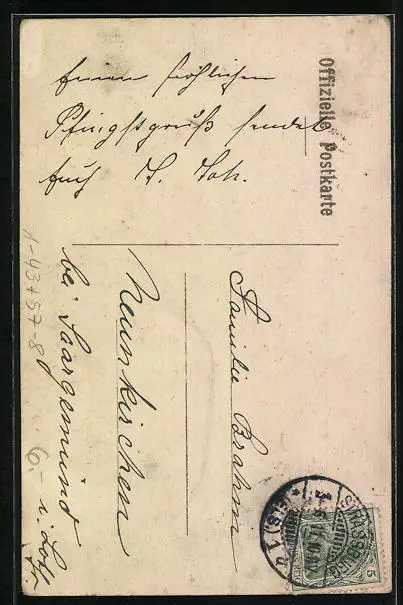 Offizielle Postkarte
Einen fröhlichen
Pfingstgruß sendet
Euch
Familie Brahm
Neunkirchen
bei Saargemünd
i. Lothr.
STRASSBURG
(ELS)
5
6-